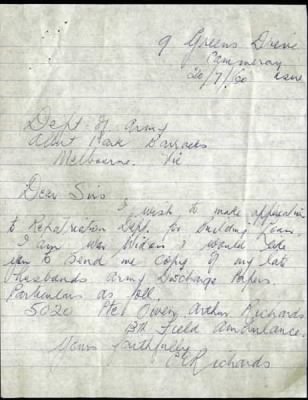 9 Greens Drive
Cammeray
20/7/60
Dept of Army
Albert Park Barracks
Melbourne. Vic
Dear Sirs
I wish to make application
to Repatriation Dept. for Building Loan.
I am War Widow & would like
you to send me Copy of my late
Husbands Army Discharge Papers.
Particulars as foll.
5020 Pte Owen Arthur Richards
13th Field Ambulance.
Yours faithfully
Richards